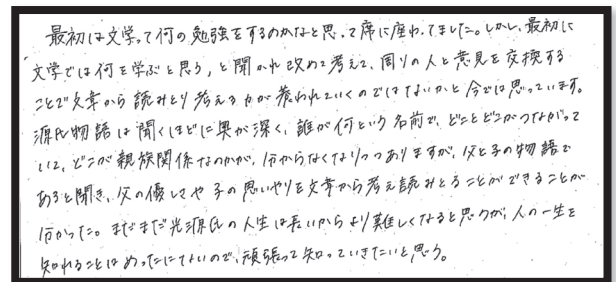 最初は文学って何の勉強をするのかなと思って席に座わってました。しかし、最初に
文学では何を学ぶと思う、と聞かれ改めて考えて、周りの人と意見を交換する
ことで文章から読みとり考える力が養われていくのではないかと今では思っています。
源氏物語は聞くほどに奥が深く、誰が何という名前で、どことどこがつながって
いて、どこが親族関係なのかが、分からなくなりつつありますが、父と子の物語で
あると聞き、父の優しさや子の思いやりを文章から考え読みとることができることが
分かった。まだまだ光源氏の人生は長いからより難しくなると思うが、人の一生を
知れることはめったにないので、頑張って知っていきたいと思う。